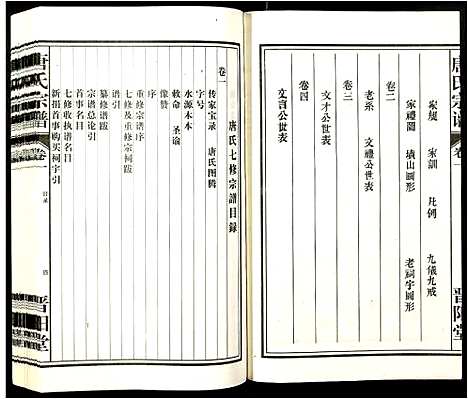 唐氏七修宗譜目録
卷一
传家宝录 唐氏图腾
字号
像赞
水源木本
敕命 圣谕
序
重修宗谱序
七修及重修宗祠跋
谱引
纂修谱跋
宗谱总论引
首事名目
七修收执谱名目
新捐首事购买祠宇引
唐氏宗谱 卷一
目录
四
晋阳堂
家规 家训 凡例 九儀九戒
家禮圖 墳山圖形 老祠宇圖形
卷二
老系 文禮公世表
卷三
文才公世表
卷四
文言公世表
唐氏宗谱 卷一
晋阳堂